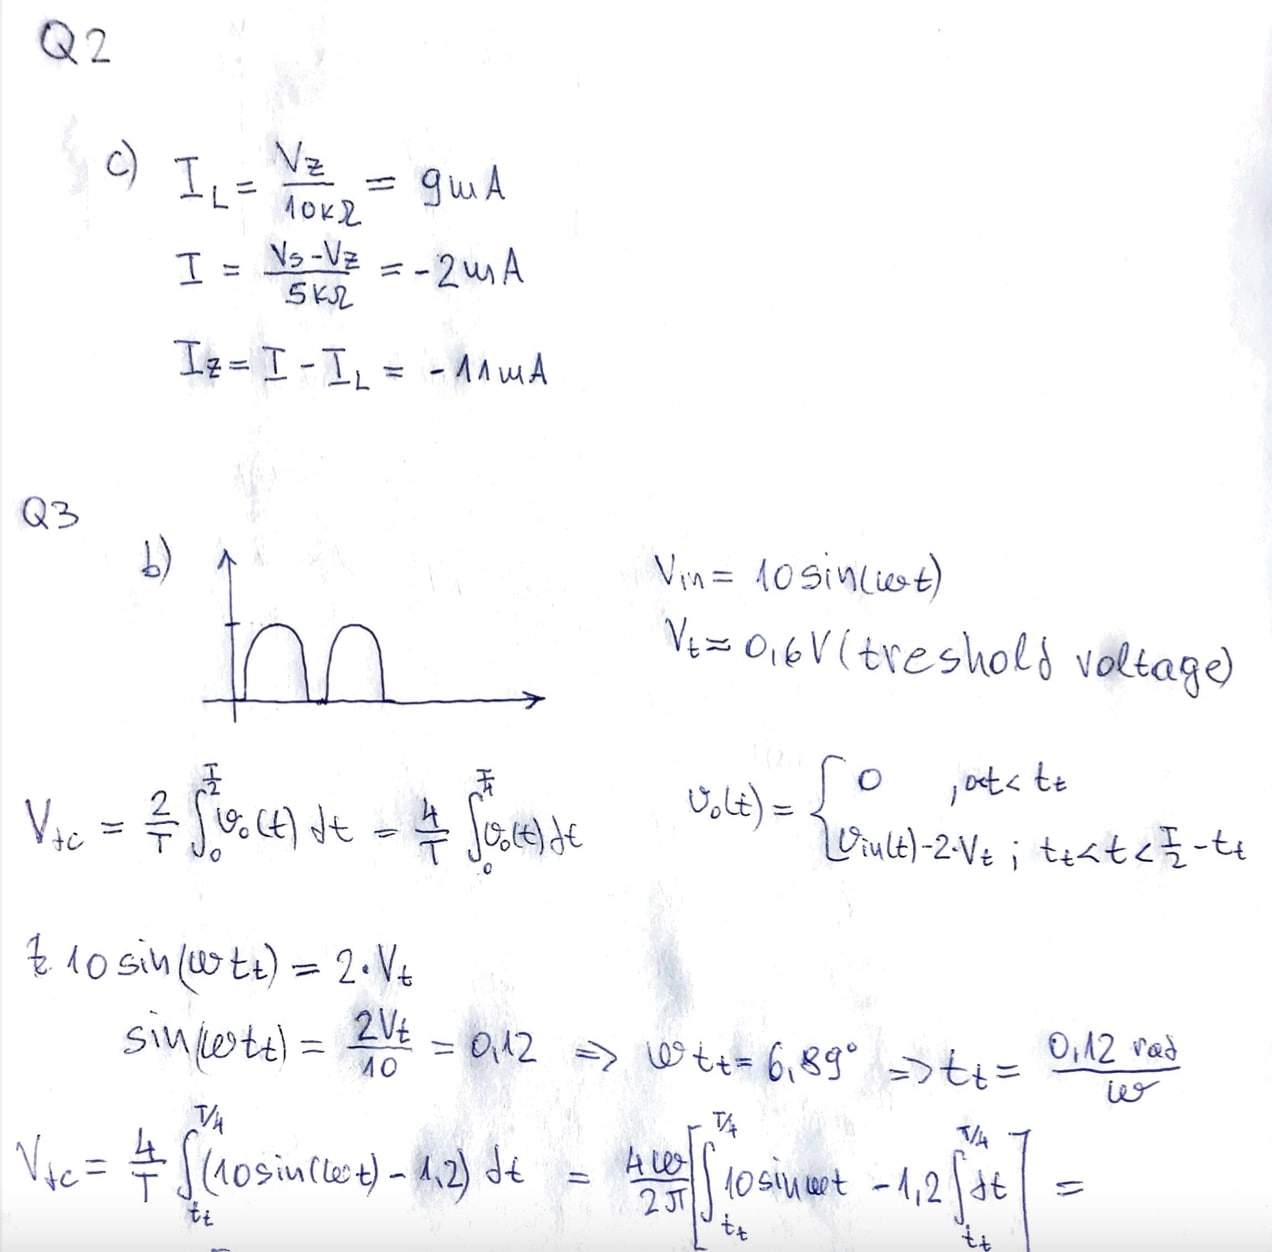 Q2
c) I_L = V_Z / 10kΩ = 9mA
I = V_S - V_Z / 5kΩ = -2mA
I_Z = I - I_L = -11mA
Q3
b)
V_in = 10 sin(ωt)
V_t = 0,6V (treshold voltage)
V_dc = 2/T ∫_0^{T/2} v_o(t) dt = 4/T ∫_0^{T/4} v_o(t) dt
v_o(t) = { 0 , 0<t<t_t
v_in(t) - 2·V_t ; t_t<t<T/2 - t_t
10 sin(ωt_t) = 2·V_t
sin(ωt_t) = 2V_t / 10 = 0,12 => ωt_t = 6,89° => t_t = 0,12 rad / ω
V_dc = 4/T ∫_{t_t}^{T/4} (10 sin(ωt) - 1,2) dt = 4ω/2π [ ∫_{t_t}^{T/4} 10 sin ωt - 1,2 ∫_{t_t}^{T/4} dt ] =